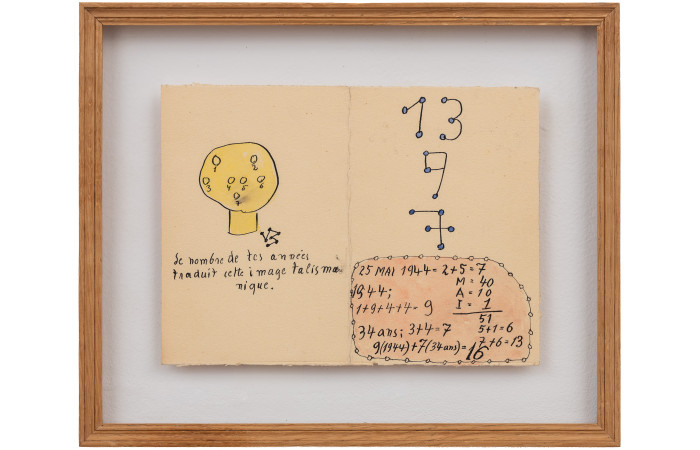 1 2
3 4 5 6
7
VB
Le nombre de tes années
traduit cette image talisma
nique.
13
9
7
25 MAI 1944 = 2+5=7
1944;
1+9+4+4= 9
34 ans; 3+4=7
9(1944)+7(34 ans)=16
M = 40
A = 10
I = 1
51
5+1=6
7+6=13